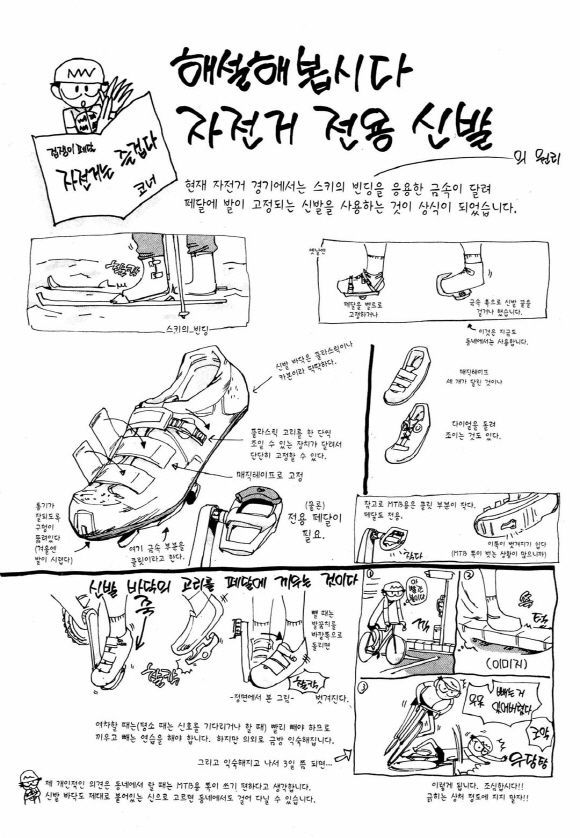 해설해봅시다
자전거 전용 신발
의 원리
겁쟁이 페달
자전거는 즐겁다
코너
현재 자전거 경기에서는 스키의 빈딩을 응용한 금속이 달려
페달에 발이 고정되는 신발을 사용하는 것이 상식이 되었습니다.
찰칵
스키의 빈딩
옛날엔
페달을 벨트로
고정하거나
금속 훅으로 신발 끝을
걸거나 했습니다.
이것은 지금도
동네에서는 사용합니다.
신발 바닥은 플라스틱이나
카본이라 딱딱하다.
플라스틱 고리를 한 단씩
조일 수 있는 장치가 달려서
단단히 고정할 수 있다.
매직테이프로 고정
통기가
잘되도록
구멍이
뚫려있다
(겨울엔
발이 시렵다)
여기 금속 부분을
클릿이라고 한다.
(물론)
전용 페달이
필요.
매직테이프
세 개가 달린 것이나
다이얼을 돌려
조이는 것도 있다.
참고로 MTB용은 클릿 부분이 작다.
페달도 전용.
작다
이쪽이 벗겨지기 쉽다
(MTB 쪽이 벗는 상황이 많으니까)
신발 바닥의 고리를 페달에 끼우는 것이다
쭉
찰칵
뺄 때는
발꿈치를
바깥쪽으로
돌리면
찰칵
벗겨진다.
-정면에서 본 그림-
여차할 때는(평소 때는 신호를 기다리거나 할 때) 빨리 빼야 하므로
끼우고 빼는 연습을 해야 합니다. 하지만 의외로 금방 익숙해집니다.
그리고 익숙해지고 나서 3일 쯤 되면...
1
아
빨간
불이다
2
턱
(이미지)
3
빼는 거
잊어버렸다
으악
우당탕
이렇게 됩니다. 조심합시다!!
긁히는 상처 정도에 지지 말자!!
제 개인적인 의견은 동네에서 탈 때는 MTB용 쪽이 쓰기 편하다고 생각합니다.
신발 바닥도 제대로 붙어있는 신으로 고르면 동네에서도 걸어 다닐 수 있습니다.